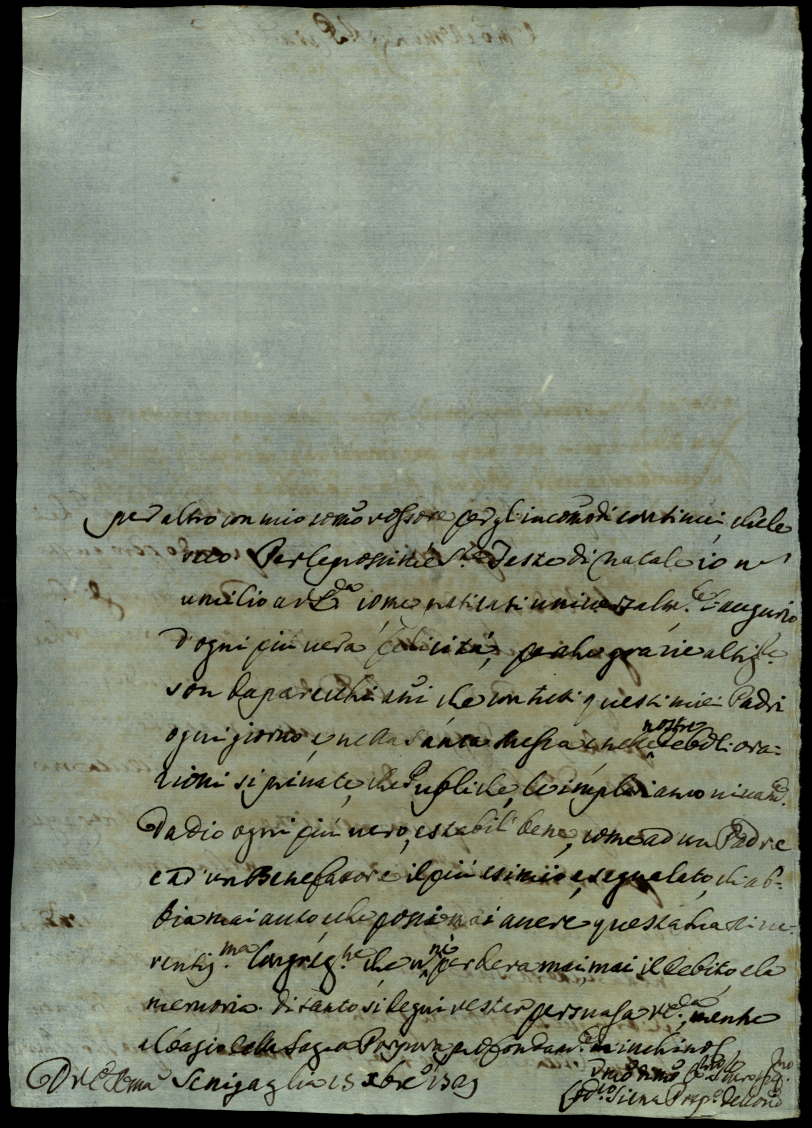 per altro con mio sommo rossore per gl'incomodi continui, che le
reco. Per le prossime Ste Feste di Natale io n
umilio a V. Em.za come praticasi universalm.te l'augurio
d'ogni più vera felicità, perche grazie all'
son da parecchi anni che con tutti questi miei Padri
ogni giorno, e nella santa Messa e nelle nostre ora=
zioni si private, che Publiche, le imploriamo
Da Dio ogni più vero, e stabil' bene, come ad un Padre
e ad un Benefatore il più esimio, e segnalato, ch'ab=
bia mai auto, e che possa mai avere questa sua
Congreg.ne che nè perderà mai, mai il debito, e la
memoria. di tanto si degni restar persuasa mentre
al bagio della Sagra Porpora profondam.te m'inchino
Di V. Em.za Senigaglia 15 Xbre
Siena Prep.o dell'Orat.